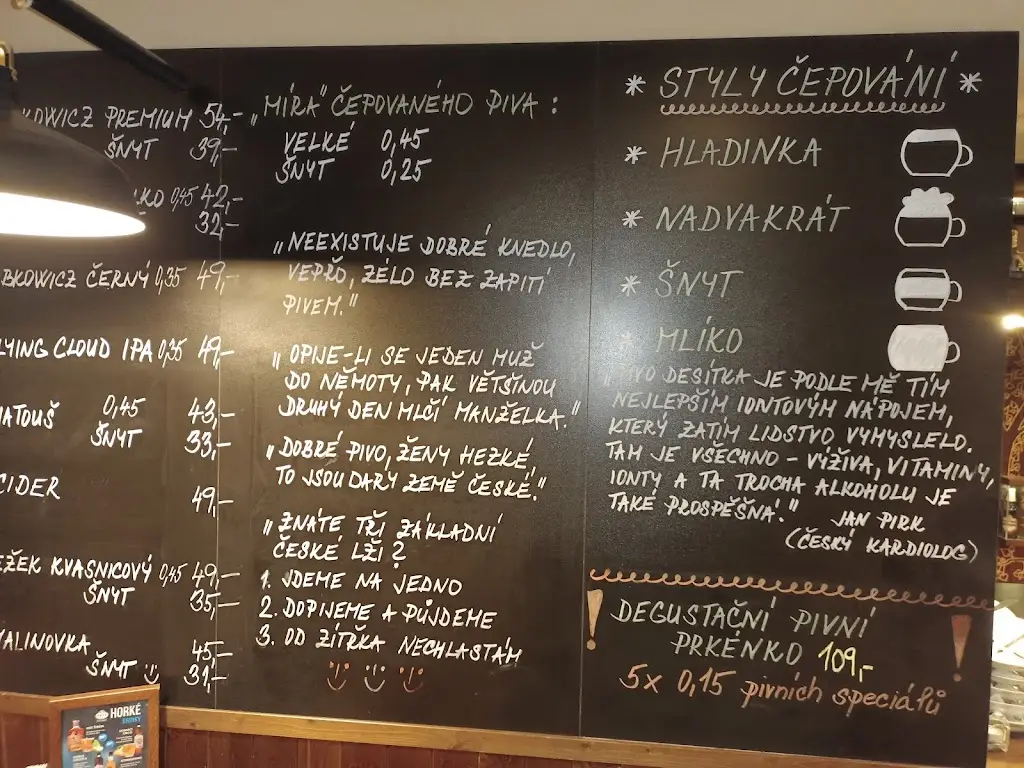 KOWICZ PREMIUM 54,-
ŠNYT 39,-
0,45 42,-
32,-
BKOWICZ ČERNÝ 0,35 49,-
LYING CLOUD IPA 0,35 49,-
MATOUŠ 0,45 43,-
ŠNYT 33,-
CIDER
49,-
EŽEK KVASNICOVÝ 0,45 49,-
ŠNYT 35,-
MALINOVKA 45,-
ŠNYT 31,-
HORKÉ
„MÍRA" ČEPOVANÉHO PIVA :
VELKÉ 0,45
ŠNYT 0,25
„NEEXISTUJE DOBRÉ KNEDLO,
VEPŘO, ZELO BEZ ZAPITÍ
PIVEM."
„OPIJE-LI SE JEDEN MUŽ
DO NĚMOTY, PAK VĚTŠINOU
DRUHÝ DEN MLČÍ MANŽELKA."
„DOBRÉ PIVO, ŽENY HEZKÉ,
TO JSOU DARY ZEMĚ ČESKÉ."
„ZNÁTE TŘI ZÁKLADNÍ
ČESKÉ LŽI?
1. JDEME NA JEDNO
2. DOPIJEME A PŮJDEME
3. OD ZÍTŘKA NECHLASTÁM
* STYLY ČEPOVÁNÍ *
* HLADINKA
* NADVAKRÁT
* ŠNYT
* MLÍKO
„PIVO DESÍTKA JE PODLE MĚ TÍM
NEJLEPŠÍM IONTOVÝM NÁPOJEM,
KTERÝ ZATÍM LIDSTVO VYMYSLELO.
TAM JE VŠECHNO - VÝŽIVA, VITAMINY,
IONTY A TA TROCHA ALKOHOLU JE
TAKÉ PROSPĚŠNÁ." JAN PIRK
(ČESKÝ KARDIOLOG)
! DEGUSTAČNÍ PIVNÍ !
PRKÉNKO 109,-
5x 0,15 pivních speciálů